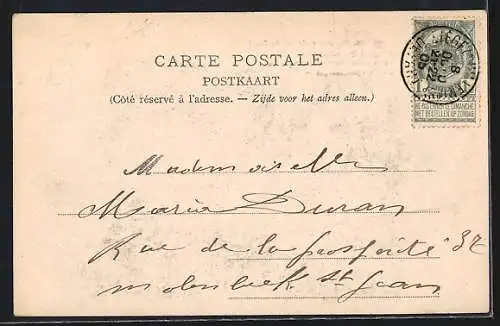 CARTE POSTALE
POSTKAART
(Côté réservé à l'adresse. — Zijde voor het adres alleen.)
Mademoiselle
Maria Duran
Rue de la prosperité 32
molenbeek St Jean
NE PAS LIVRER LE DIMANCHE
NIET BESTELLEN OP ZONDAG